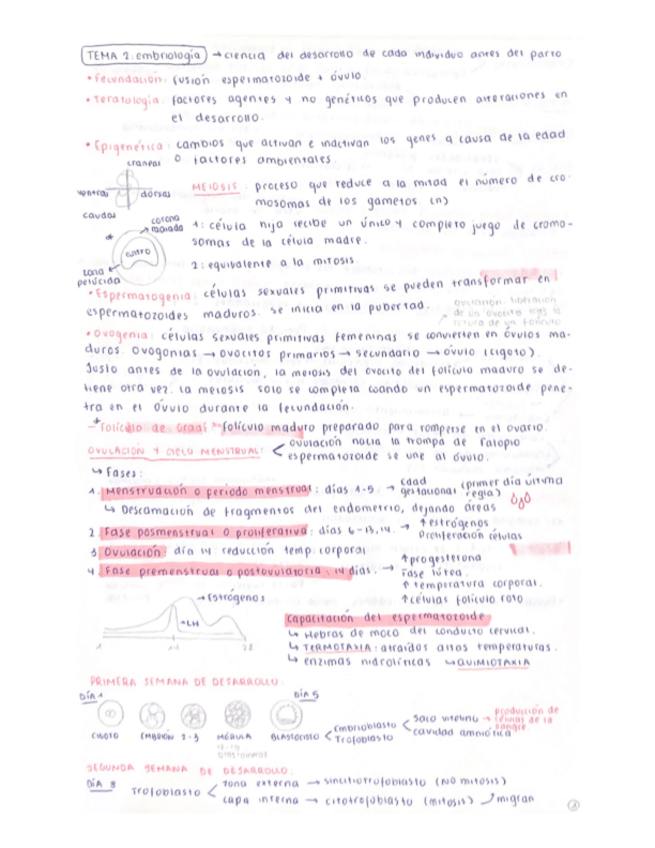 TEMA 2: embriología → ciencia del desarrollo de cada individuo antes del parto
• Fecundación: fusión espermatozoide + óvulo.
• Teratología: factores agentes y no genéticos que producen alteraciones en
el desarrollo.
• Epigenética: cambios que activan e inactivan los genes a causa de la edad
o factores ambientales.
craneal
ventral
dorsal
caudal
MEIOSIS: proceso que reduce a la mitad el número de cro-
mosomas de los gametos. (n)
corona
radiada
antro
zona
pelúcida
1: célula hija recibe un único y completo juego de cromo-
somas de la célula madre.
2: equivalente a la mitosis.
• Espermatogenia: células sexuales primitivas se pueden transformar en
espermatozoides maduros. se inicia en la pubertad.
ovulación: liberación
de un ovocito tras la
rotura de un folículo
• Ovogenia: células sexuales primitivas femeninas se convierten en óvulos ma-
duros. Ovogonias → ovocitos primarios → secundario → óvulo (cigoto).
Justo antes de la ovulación, la meiosis del ovocito del folículo maduro se de-
tiene otra vez. la meiosis solo se completa cuando un espermatozoide pene-
tra en el óvulo durante la fecundación.
* Folículo de Graaf: folículo maduro preparado para romperse en el ovario.
OVULACIÓN Y CICLO MENSTRUAL: < ovulación hacia la trompa de Falopio
espermatozoide se une al óvulo.
↳ Fases:
1. Menstruación o periodo menstrual: días 1-5. → Edad gestacional (primer día última regla)
↳ Descamación de fragmentos del endometrio, dejando áreas
2. Fase posmenstrual o proliferativa: días 6-13,14. → ↑estrógenos
Proliferación células
3. Ovulación: día 14: reducción temp. corporal
4. Fase premenstrual o postovulatoria: 14 días. → ↑progesterona
Fase lútea.
↑ temperatura corporal.
↑células folículo roto
→ Estrógenos
→LH
1
14
28
Capacitación del espermatozoide
↳ Hebras de moco del conducto cervical.
↳ TERMOTAXIA: atraídos altas temperaturas.
↳ enzimas hidrolíticas ↳ QUIMIOTAXIA
PRIMERA SEMANA DE DESARROLLO:
DÍA 1
DÍA 5
CIGOTO
EMBRIÓN 2-3
MÓRULA
BLASTOCISTO
12-16
blastómeros
Embrioblasto
Trofoblasto
Saco vitelino → producción de células de la sangre
cavidad amniótica
SEGUNDA SEMANA DE DESARROLLO:
DÍA 8
Trofoblasto < zona externa → sincitiotrofoblasto (NO mitosis)
capa interna → citotrofoblasto (mitosis) migran